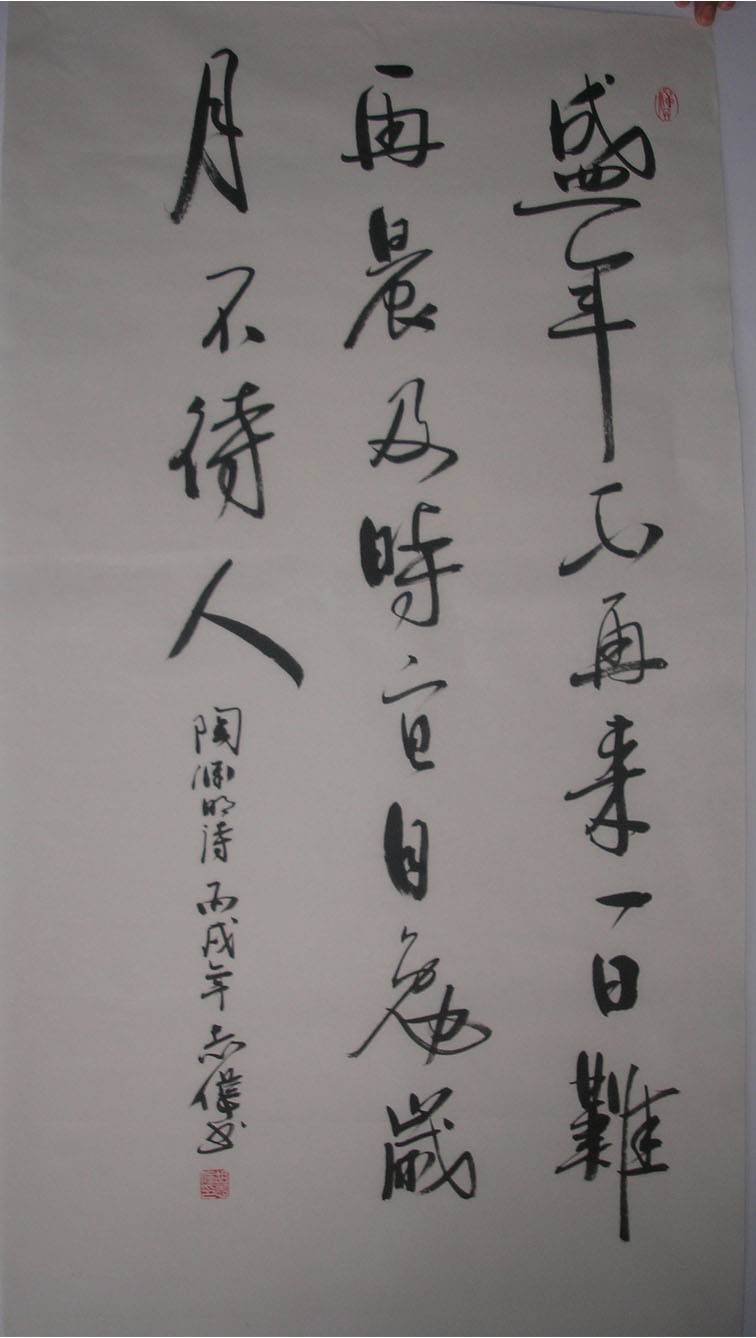 盛年不再来一日難
再晨及時宜自勉歲
月不待人
陶渊明诗 丙戌年 志伟书